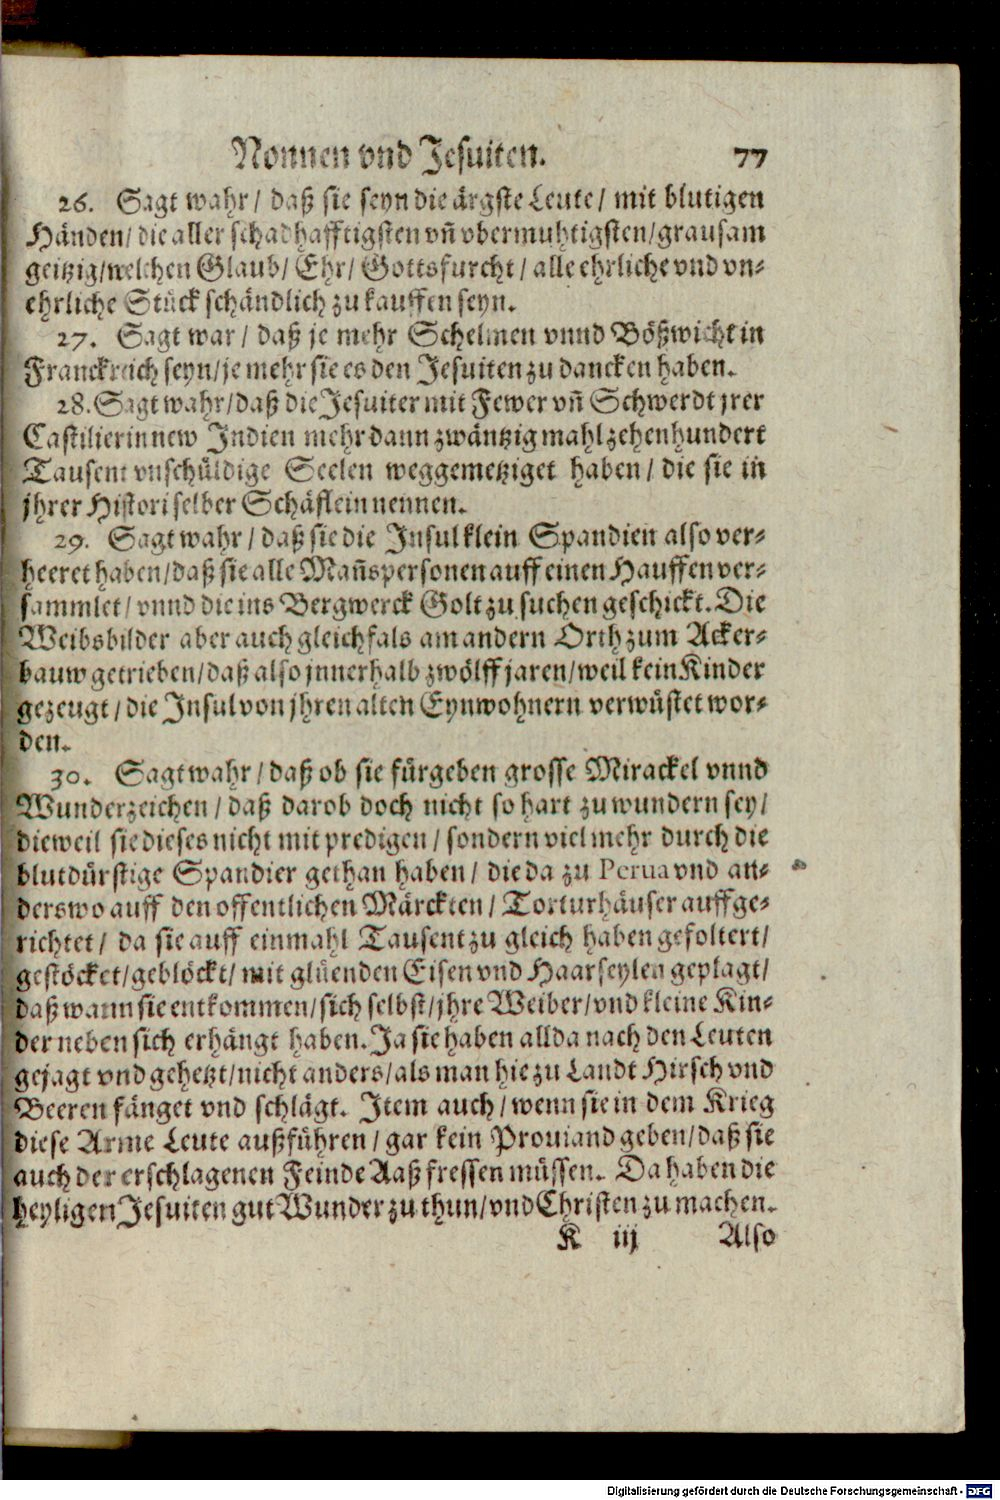 Nonnen vnd Jesuiten. 77
26. Sagt wahr / daß sie seyn die ärgste Leute / mit blutigen
Händen / die aller schadhafftigsten vñ vbermuhtigsten / grausam
geitzig / welchen Glaub / Ehr / Gottsfurcht / alle ehrliche vnd vn-
ehrliche Stück schändlich zu kauffen seyn.
27. Sagt war / daß je mehr Schelmen vnnd Bößwicht in
Franckreich seyn / je mehr sie es den Jesuiten zu dancken haben.
28. Sagt wahr / daß die Jesuiter mit Fewer vñ Schwerdt jrer
Castilier in new Indien mehr dann zwäntzig mahl zehenhundert
Tausent vnschüldige Seelen weggemetziget haben / die sie in
jhrer Histori selber Schäflein nennen.
29. Sagt wahr / daß sie die Insul klein Spandien also ver-
heeret haben / daß sie alle Mañspersonen auff einen Hauffen ver-
sammlet / vnnd die ins Bergwerck Golt zu suchen geschickt. Die
Weibsbilder aber auch gleichfals am andern Orth zum Acker-
bauw getrieben / daß also jnnerhalb zwölff jaren / weil kein Kinder
gezeugt / die Insul von jhren alten Eynwohnern verwüstet wor-
den.
30. Sagt wahr / daß ob sie fürgeben grosse Mirackel vnnd
Wunderzeichen / daß darob doch nicht so hart zu wundern sey /
dieweil sie dieses nicht mit predigen / sondern viel mehr durch die
blutdürstige Spandier gethan haben / die da zu Perua vnd an-
derswo auff den offentlichen Märckten / Torturhäuser auffge-
richtet / da sie auff einmahl Tausent zu gleich haben gefoltert /
gestöcket / geblöckt / mit glüenden Eisen vnd Haarseylen geplagt /
daß wann sie entkommen / sich selbst / jhre Weiber / vnd kleine Kin-
der neben sich erhängt haben. Ja sie haben allda nach den Leuten
gejagt vnd gehetzt / nicht anders / als man hie zu Landt Hirsch vnd
Beeren fänget vnd schlägt. Item auch / wenn sie in dem Krieg
diese Arme Leute außführen / gar kein Prouiand geben / daß sie
auch der erschlagenen Feinde Aaß fressen müssen. Da haben die
heyligen Jesuiten gut Wunder zu thun / vnd Christen zu machen.
K iij Also
Digitalisierung gefördert durch die Deutsche Forschungsgemeinschaft - DFG